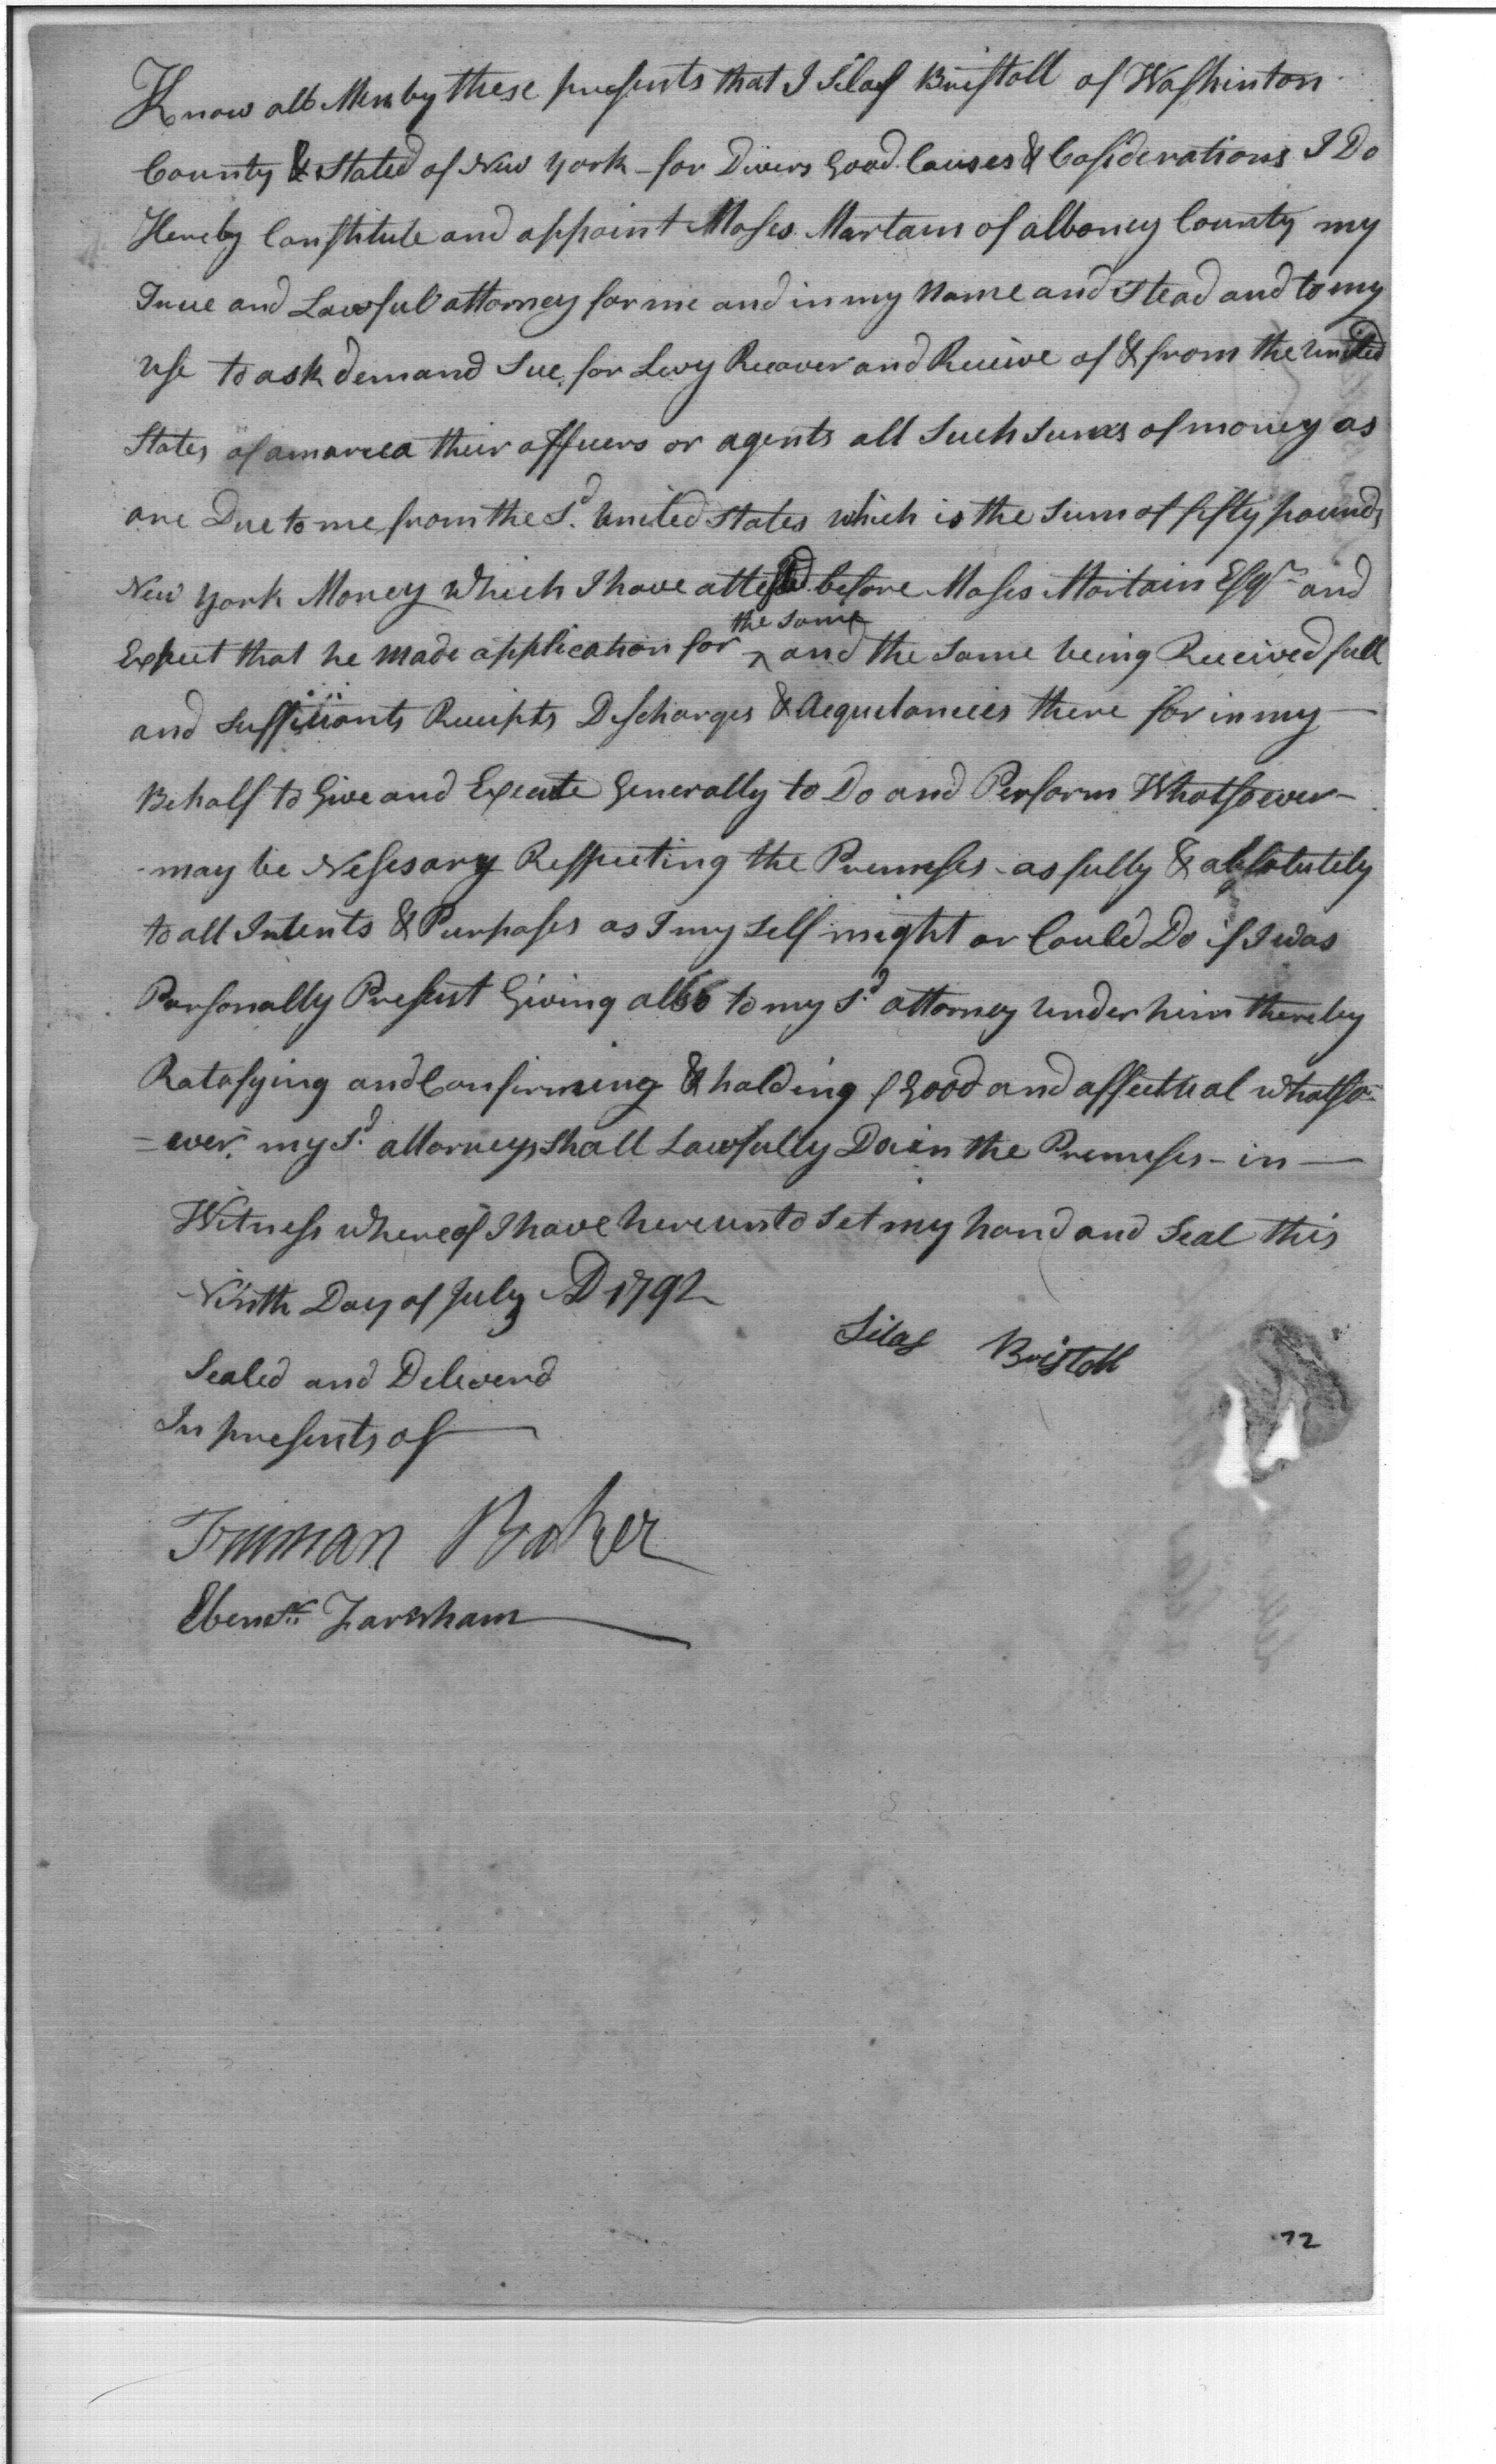 Know all Men by these presents that I Silas Bristoll of Washinton
County & Stated of New York - for Divers Good Causes & Cosiderations I Do
Hereby Constitute and appoint Moses Martain of alboney County my
True and Lawful attorney for me and in my Name and Stead and to my
use to ask demand Sue, for Levy Recover and Receive of & from the United
States of amareca their officers or agents all Such Sums of money as
are Due to me from the Sd. United States which is the Sum of fifty pounds
New York Money Which I have attested before Moses Martain Esqr and
Expect that he made application for ^ and the Same being Received full
the same
and Sufficiants Receipts Discharges & Acquetancies there for in my —
Behalf to Give and Execute Generally to Do and Perform Whatsoever -
- may be Nesesary Respecting the Premeses - as fully & absolutely
to all Intents & Purposes as I my Self might or Could Do if I was
Personally Present Giving allso to my Sd. attorney under him thereby
Ratafying and Confirming & holding Good and affectual whatso=
=ever. my Sd. attorneys Shall Lawfully Do in the Premeses - in —
Witness whereof I have hereunto Set my hand and Seal this
Ninth Day of July AD 1792
Silas Bristoll
Sealed and Deleverd
In presents of
Truman Baker
Ebenezr Farnham
72